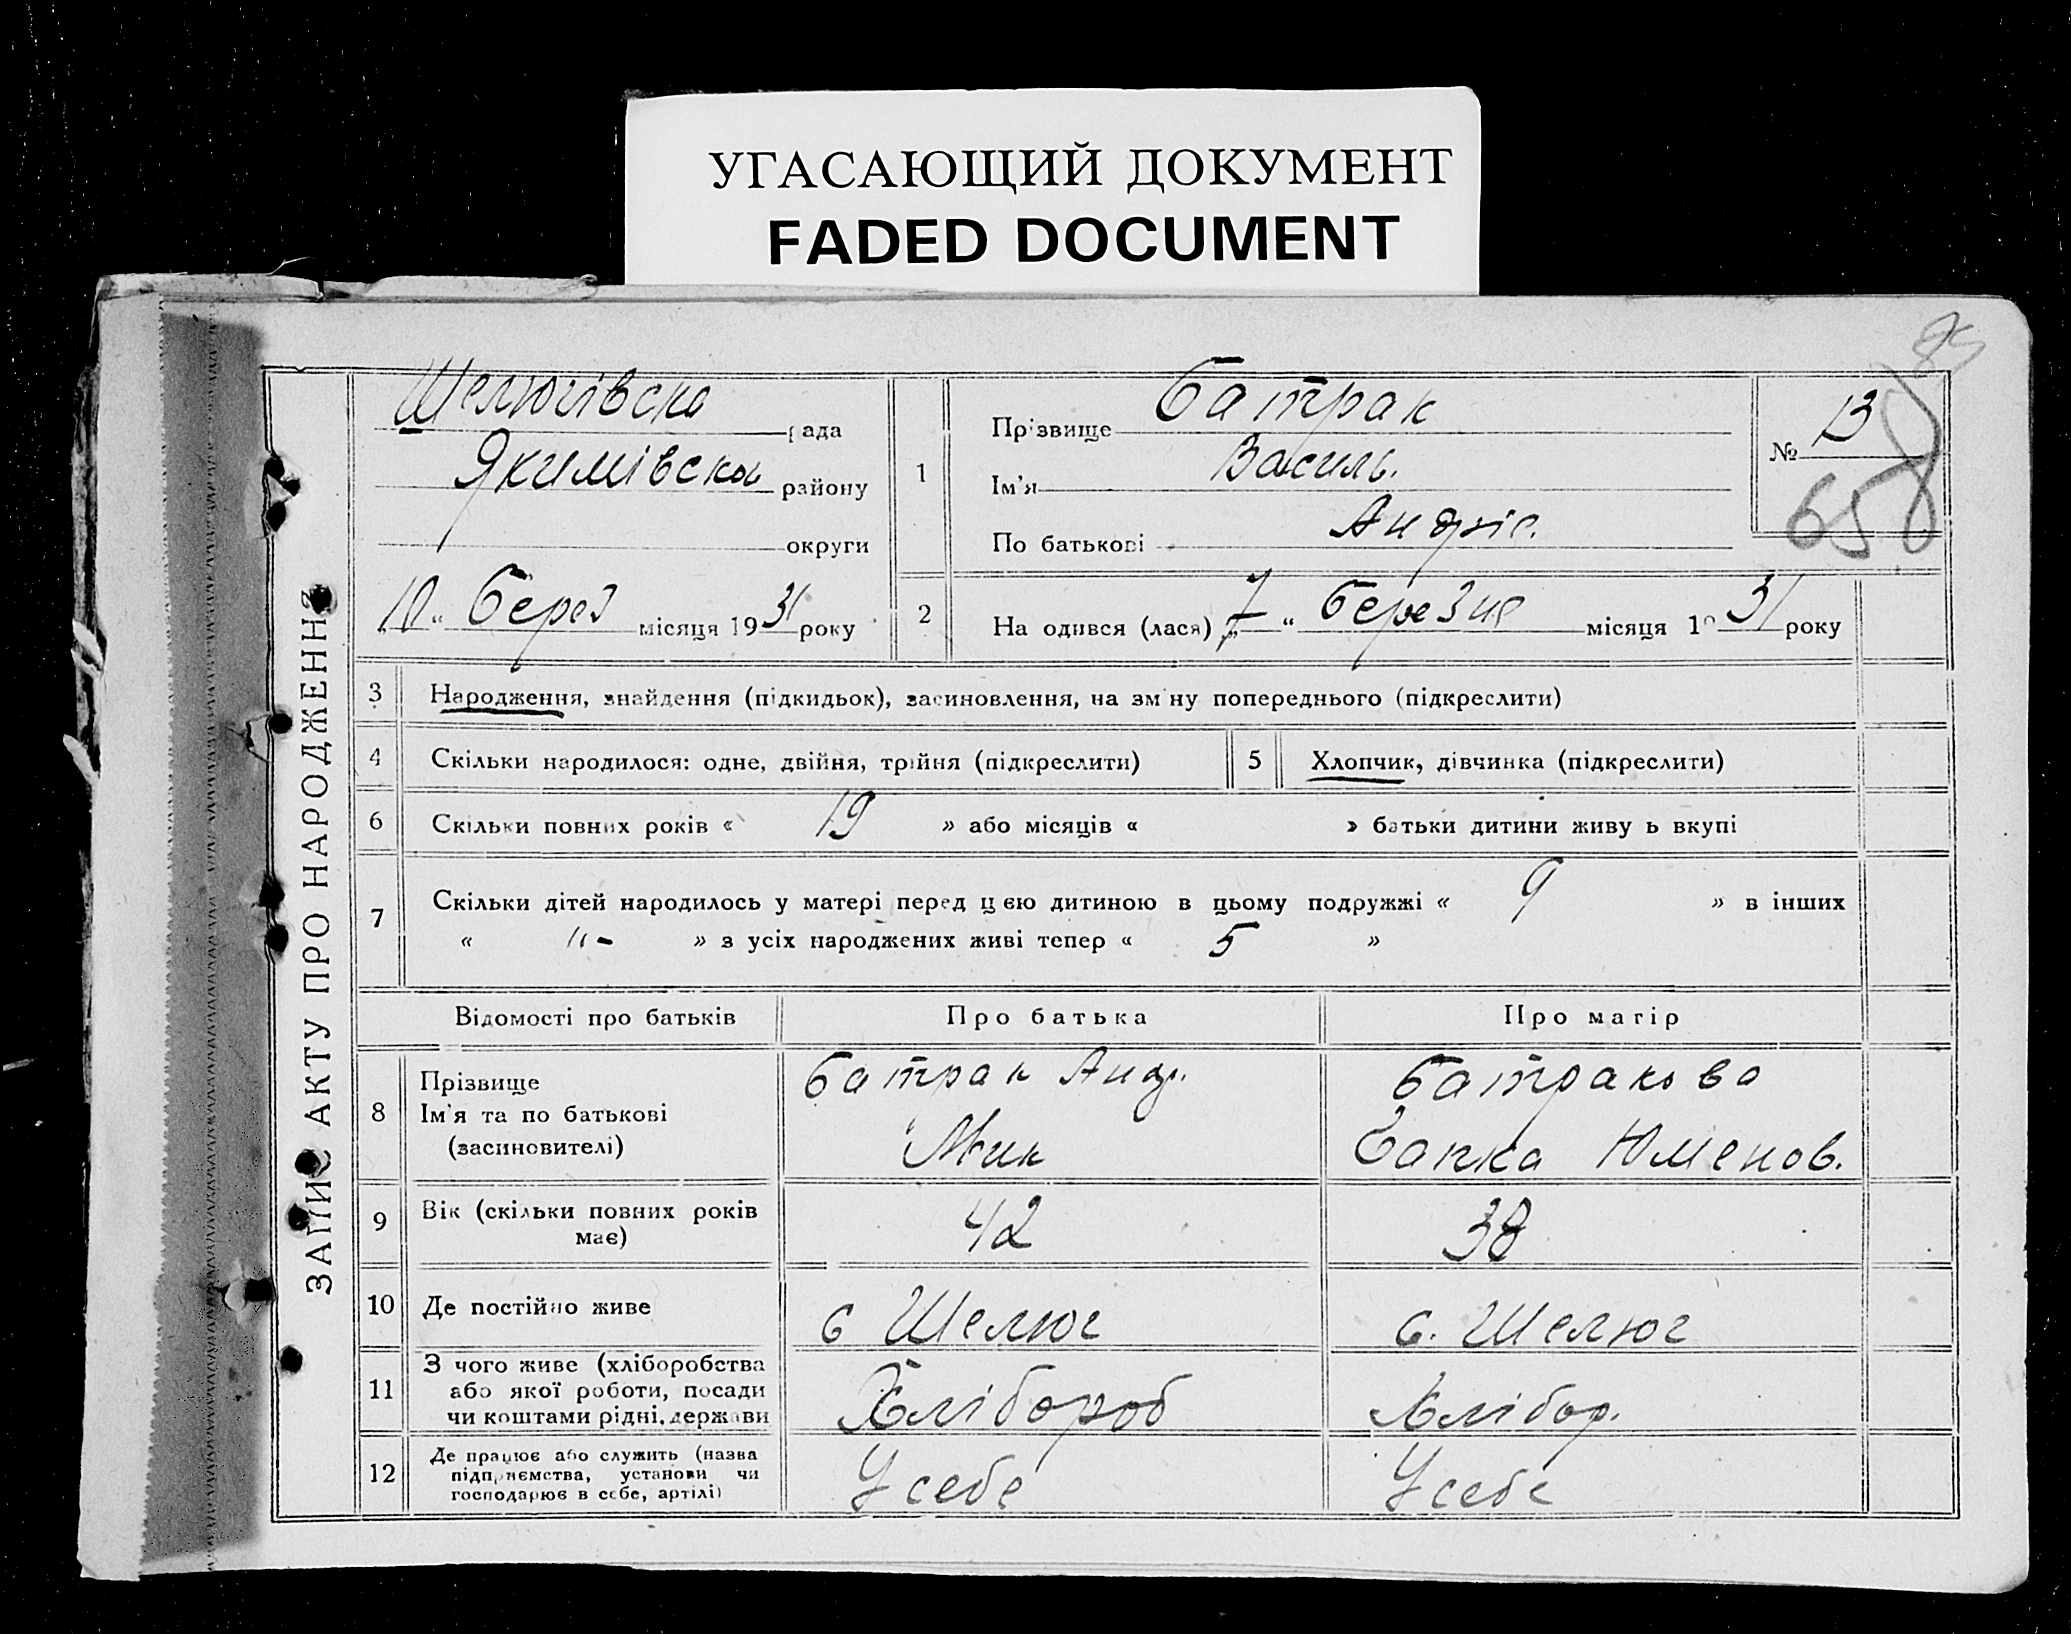 УГАСАЮЩИЙ ДОКУМЕНТ
FADED DOCUMENT
ЗАПИС АКТУ ПРО НАРОДЖЕННЯ
Шелюгівска рада
Якимівска району
округи
„10“ Берез місяця 1931 року
1
Прізвище Батрак
Ім'я Василь.
По батькові Андріє.
№ 13
658
85
2 На одився (лася) „7“ березня місяця 1931 року
3 Народження, знайдення (підкидьок), засиновлення, на зміну попереднього (підкреслити)
4 Скільки народилося: одне, двійня, трійня (підкреслити) 5 Хлопчик, дівчинка (підкреслити)
6 Скільки повних років « 19 » або місяців « » батьки дитини живу ь вкупі
7 Скільки дітей народилось у матері перед цією дитиною в цьому подружжі « 9 » в інших
« "- » з усіх народжених живі тепер « 5 »
Відомості про батьків Про батька Про матір
8 Прізвище
Ім'я та по батькові
(засиновителі)
Батрак Анд.
Мик
Батракова
Юменов.
9 Вік (скільки повних років
має)
42 38
10 Де постійно живе с Шелюг с. Шелюг
11 З чого живе (хліборобства
або якої роботи, посади
чи коштами рідні, держави
Хлібороб Хлібор.
12 Де працює або служить (назва
підприємства, установи чи
господарює в себе, артілі)
У себе У себе